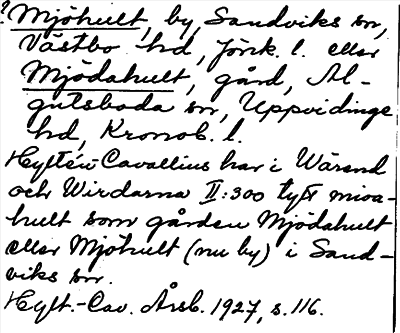 ? Mjöhult, by, Sandviks sn,
Västbo hd, Jönk. l. eller
Mjödahult, gård, Äl-
gutsboda sn, Uppvidinge
hd, Kronob. l.
Hyltén-Cavallius har i Wärend
och Wirdarna II:300 tytt mioa-
hult som gården Mjödahult
eller Mjöhult (nu by) i Sand-
viks sn.
Hylt.-Cav. Årsb. 1927, s. 116.